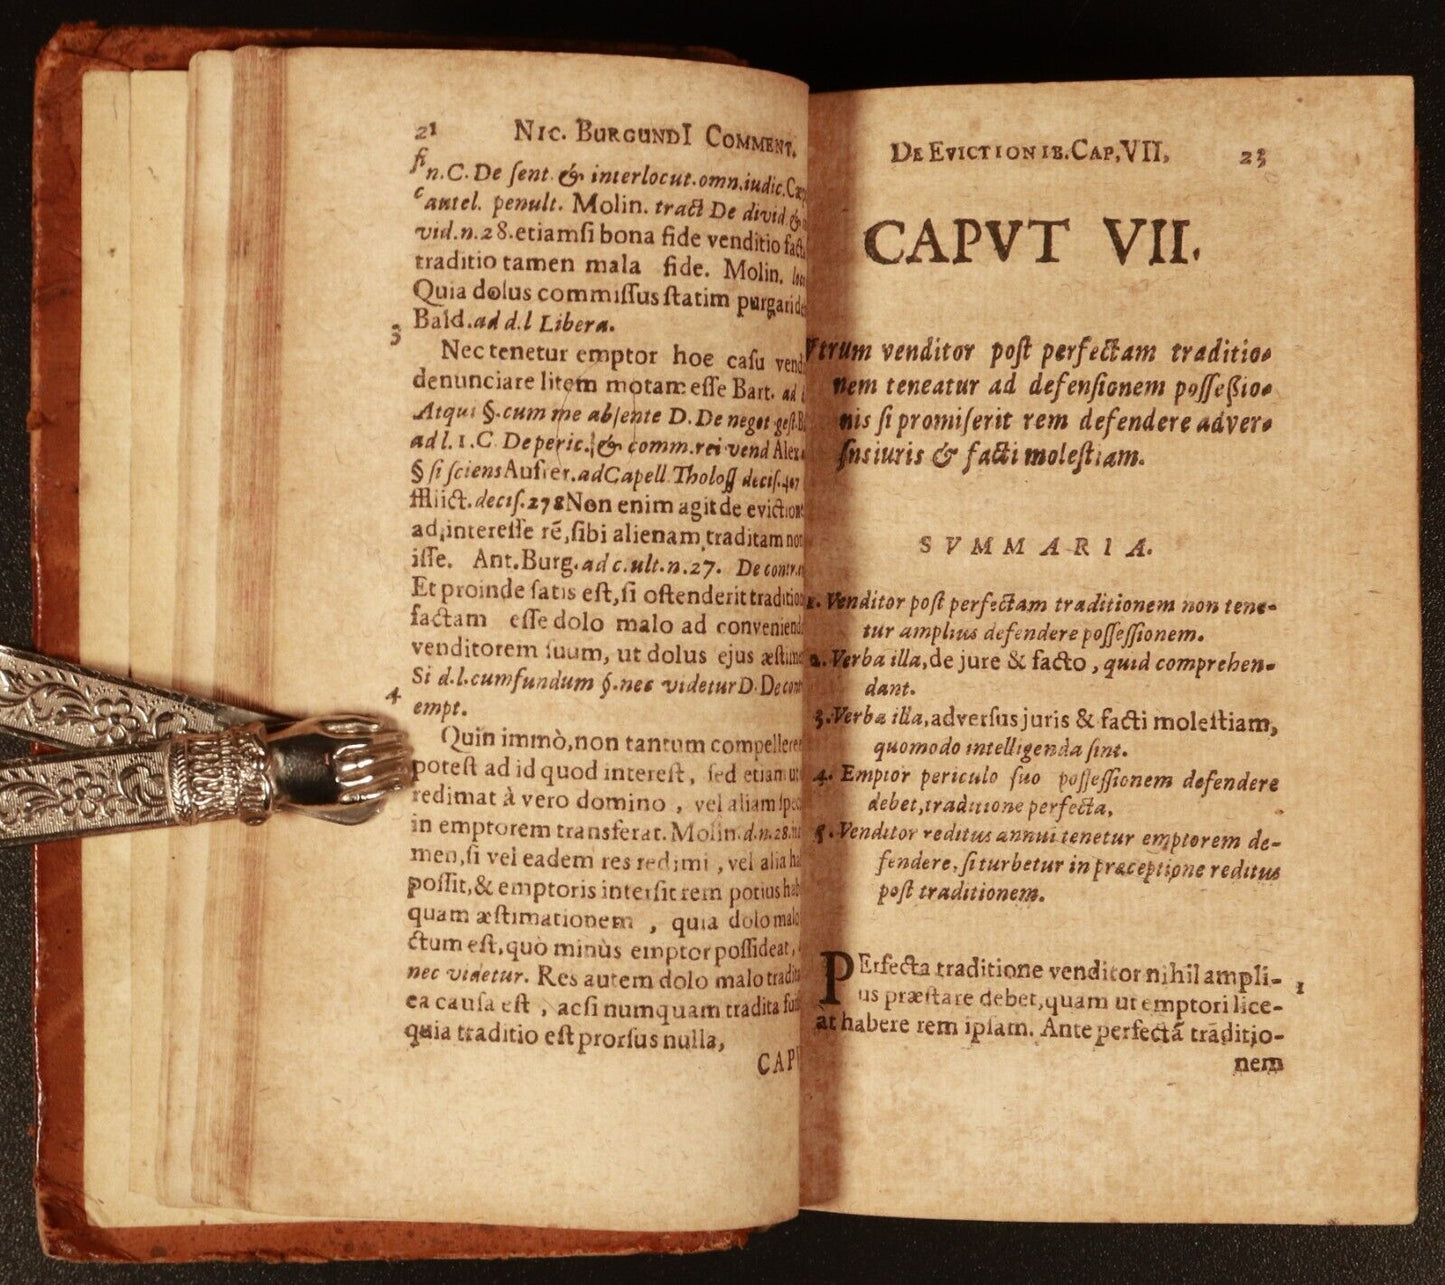 21 NIC. BURGUNDI COMMENT.
fin. C. De ſent. & interlocut. omn. iudic. Cæp
cautel. penult. Molin. tract De divid &
vid. n. 28. etiamſi bona fide venditio fact.
traditio tamen mala fide. Molin. loc
Quia dolus commiſſus ſtatim purgari de
Bald. ad d. l Libera.
3
Nec tenetur emptor hoe caſu vend
denunciare litem motam eſſe Bart. ad l
Atqui §. cum me abſente D. De negot geſt. B
ad l. 1. C De peric. & comm. rei vend Alex.
§ ſi ſciens Aufrer. ad Capell. Tholoſſ deciſ. 407
deciſ. 278 Non enim agit de eviction
ad intereſſe rē, ſibi alienam traditam non
iſſe. Ant. Burg. ad c. ult. n. 27. De contr.
Et proinde ſatis eſt, ſi oſtenderit tradition
factam eſſe dolo malo ad conveniend
venditorem ſuum, ut dolus ejus æſtime
Si d. l. cum fundum §. nec videtur D. De cont
4
empt.
Quin immò, non tantum compellere
poteſt ad id quod intereſt, ſed etiam ut
redimat à vero domino, vel aliam ſpec
in emptorem transferat. Molin. d. n. 28.
men, ſi vel eadem res redimi, vel alia ha
poſſit, & emptoris interſit rem potius hab
quam æſtimationem, quia dolo malo
ctum eſt, quò minùs emptor poſſideat,
nec videtur. Res autem dolo malo tradita
ea cauſa eſt, acſi numquam tradita fuiſ
quia traditio eſt prorſus nulla,
CAPV
DE EVICTIONIB. CAP. VII, 23
CAPVT VII.
Vtrum venditor poſt perfectam traditio-
nem teneatur ad defenſionem poſſeßio-
nis ſi promiſerit rem defendere adver-
ſus iuris & facti moleſtiam.
SVMMARIA.
1. Venditor poſt perfectam traditionem non tene-
tur amplius defendere poſſeſſionem.
2. Verba illa, de jure & facto, quid comprehen-
dant.
3. Verba illa, adverſus juris & facti moleſtiam,
quomodo intelligenda ſint.
4. Emptor periculo ſuo poſſeſſionem defendere
debet, traditione perfecta,
5. Venditor reditus annui tenetur emptorem de-
fendere, ſi turbetur in præceptione reditus
poſt traditionem.
PErfecta traditione venditor nihil ampli- 1
us præſtare debet, quam ut emptori lice-
at habere rem ipſam. Ante perfectā traditio-
nem